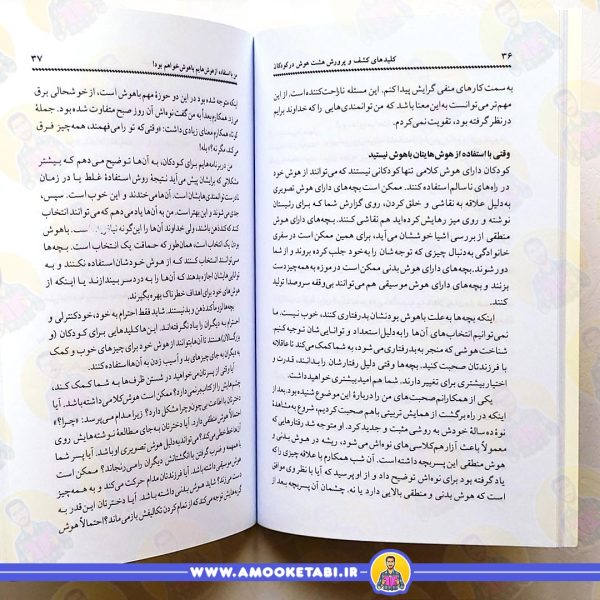 ۳۶
کلیدهای کشف و پرورش هشت هوش در کودکان
به سمت کارهای منفی گرایش پیدا کنم. این مسئله ناراحت‌کننده است. از این
مهم‌تر می‌توانست به این معنا باشد که من توانمندی‌هایی را که خداوند برایم
در نظر گرفته بود، تقویت نمی‌کردم.
وقتی با استفاده از هوش‌هایتان باهوش نیستید
کودکان دارای هوش کلامی تنها کودکانی نیستند که می‌توانند از هوش خود
در راه‌های ناسالم استفاده کنند. ممکن است بچه‌های دارای هوش تصویری
به دلیل علاقه به نقاشی و خلق کردن، روی گزارش شما که برای رئیستان
نوشته و روی میز رهایش کرده‌اید، نقاشی کنند. بچه‌های دارای هوش
منطقی از بررسی اشیا خوششان می‌آید، برای همین ممکن است در سفری
خانوادگی به‌دنبال چیزی که توجه‌شان را به خود جلب کرده بروند و از شما
دور شوند. بچه‌های دارای هوش بدنی ممکن است در موزه به همه‌چیز دست
بزنند و بچه‌های دارای هوش موسیقی هم می‌توانند بی‌وقفه سروصدا تولید
کنند.
اینکه بچه‌ها به علت باهوش بودنشان بدرفتاری کنند، خوب نیست. ما
نمی‌توانیم انتخاب‌های آن‌ها را به‌دلیل استعداد و توانایی‌شان توجیه کنیم
شناخت هوشی که منجر به بدرفتاری می‌شود، به شما کمک می‌کند تا عاقلانه
با فرزندتان صحبت کنید. بچه‌ها وقتی دلیل رفتارشان را بدانند، قدرت و
اختیار بیشتری برای تغییر دارند. شما هم امید بیشتری خواهید داشت.
یکی از همکارانم صحبت‌های من را دربارهٔ این موضوع شنیده بود. بعد از
اینکه در راه برگشت از همایش تربیتی باهم صحبت کردیم، شروع به مشاهدهٔ
نوهٔ ده‌سالهٔ خودش به روشی مثبت و جدید کرد. او متوجه شد رفتارهایی که
معمولاً باعث آزار هم‌کلاسی‌های نوه‌اش می‌شود، ریشه در هوش بدنی و
هوش منطقی این پسربچه داشته است. آن شب همکارم با علاقه چیزی را که
یاد گرفته بود برای نوه‌اش توضیح داد و از او پرسید که آیا با نظر وی موافق
است که هوش بدنی و منطقی بالایی دارد یا نه. چشمان آن پسربچه بعد از
من با استفاده از هوش‌هایم باهوش خواهم بود!
۳۷
اینکه متوجه شده بود در این دو حوزهٔ مهم باهوش است، از خوشحالی برق
می‌زد. همکارم بعداً به من گفت نوه‌اش آن روز صبح متفاوت شده بود. جملهٔ
کوتاه همکارم معنای زیادی داشت: «وقتی که تو را می‌فهمند، همه‌چیز فرق
می‌کند، مگر نه؟» بله!
من در برنامه‌هایم برای کودکان، به آن‌ها توضیح می‌دهم که بیشتر
مشکلاتی که برایشان پیش می‌آید نتیجهٔ روش استفادهٔ غلط یا در زمان
نادرست توانمندی‌هایشان است. آن‌ها می‌خندند و این خوب است. سپس،
جدی می‌شوند و این بهتر است. من به آن‌ها یاد می‌دهم که می‌توانند انتخاب
کنند که ذهن باشند، ولی خداوند آن‌ها را این‌گونه باهوش
بودن یک انتخاب است، همان‌طور که حماقت یک انتخاب است. بچه‌ها
می‌توانند انتخاب کنند که از هوش خودشان استفاده نکنند و به
توانایی‌هایشان اجازه بدهند که آن‌ها را به دردسر بیندازند یا اینکه از
هوش‌های خود برای اهداف خطرناک بهره بگیرند.
بچه‌ها لزوماً کندذهن و بد نیستند. شاید فقط احترام به خود، خودکنترلی و
احترام به دیگران را یاد نگرفته‌اند. این‌ها کلیدهایی برای کودکان (و
بزرگسالان) هستند تا آن‌ها بتوانند از هوش خود برای چیزهای خوب و کمک
به دیگران به جای چیزهای بد و آسیب زدن به آن‌ها استفاده کنند.
آیا وقتی از پسرتان می‌خواهید در شستن ظرف‌ها به شما کمک کند،
چشم‌هایش را از کتاب برنمی‌دارد؟ ممکن است هوش کلامی داشته باشد. آیا
دخترتان با اطاعت بی‌چون‌وچرا مشکل دارد؟ زیرا مدام می‌پرسد: «چرا؟»
احتمالاً هوش منطقی دارد. آیا دخترتان به‌جای مطالعهٔ نوشته‌هایش روی
آن‌ها خط‌خطی می‌کند؟ می‌تواند به‌دلیل هوش تصویری او باشد. آیا پسر شما
با همهمه و ضرب گرفتن با انگشتانش دیگران را می‌رنجاند؟ ممکن است
هوش موسیقی داشته باشد. آیا فرزندتان مدام حرکت می‌کند و به همه‌چیز
دست می‌زند؟ شاید هوش بدنی داشته باشد. آیا دخترتان این قدر به
گربه‌هایش توجه می‌کند که از تمام کردن تکالیفش باز می‌ماند؟ احتمالاً هوش
WWW.AMOOKETABI.IR